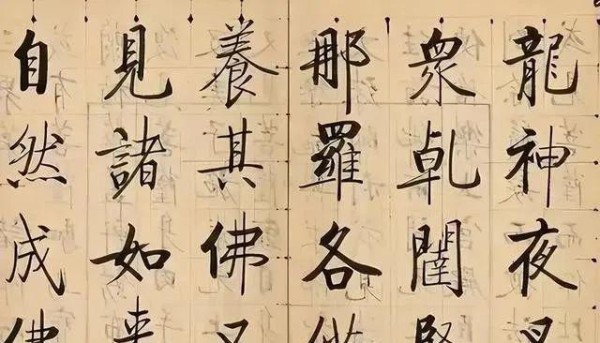 龍神夜叉
衆乹闥緊
那羅各供
養其佛又
見諸如来
自然成佛